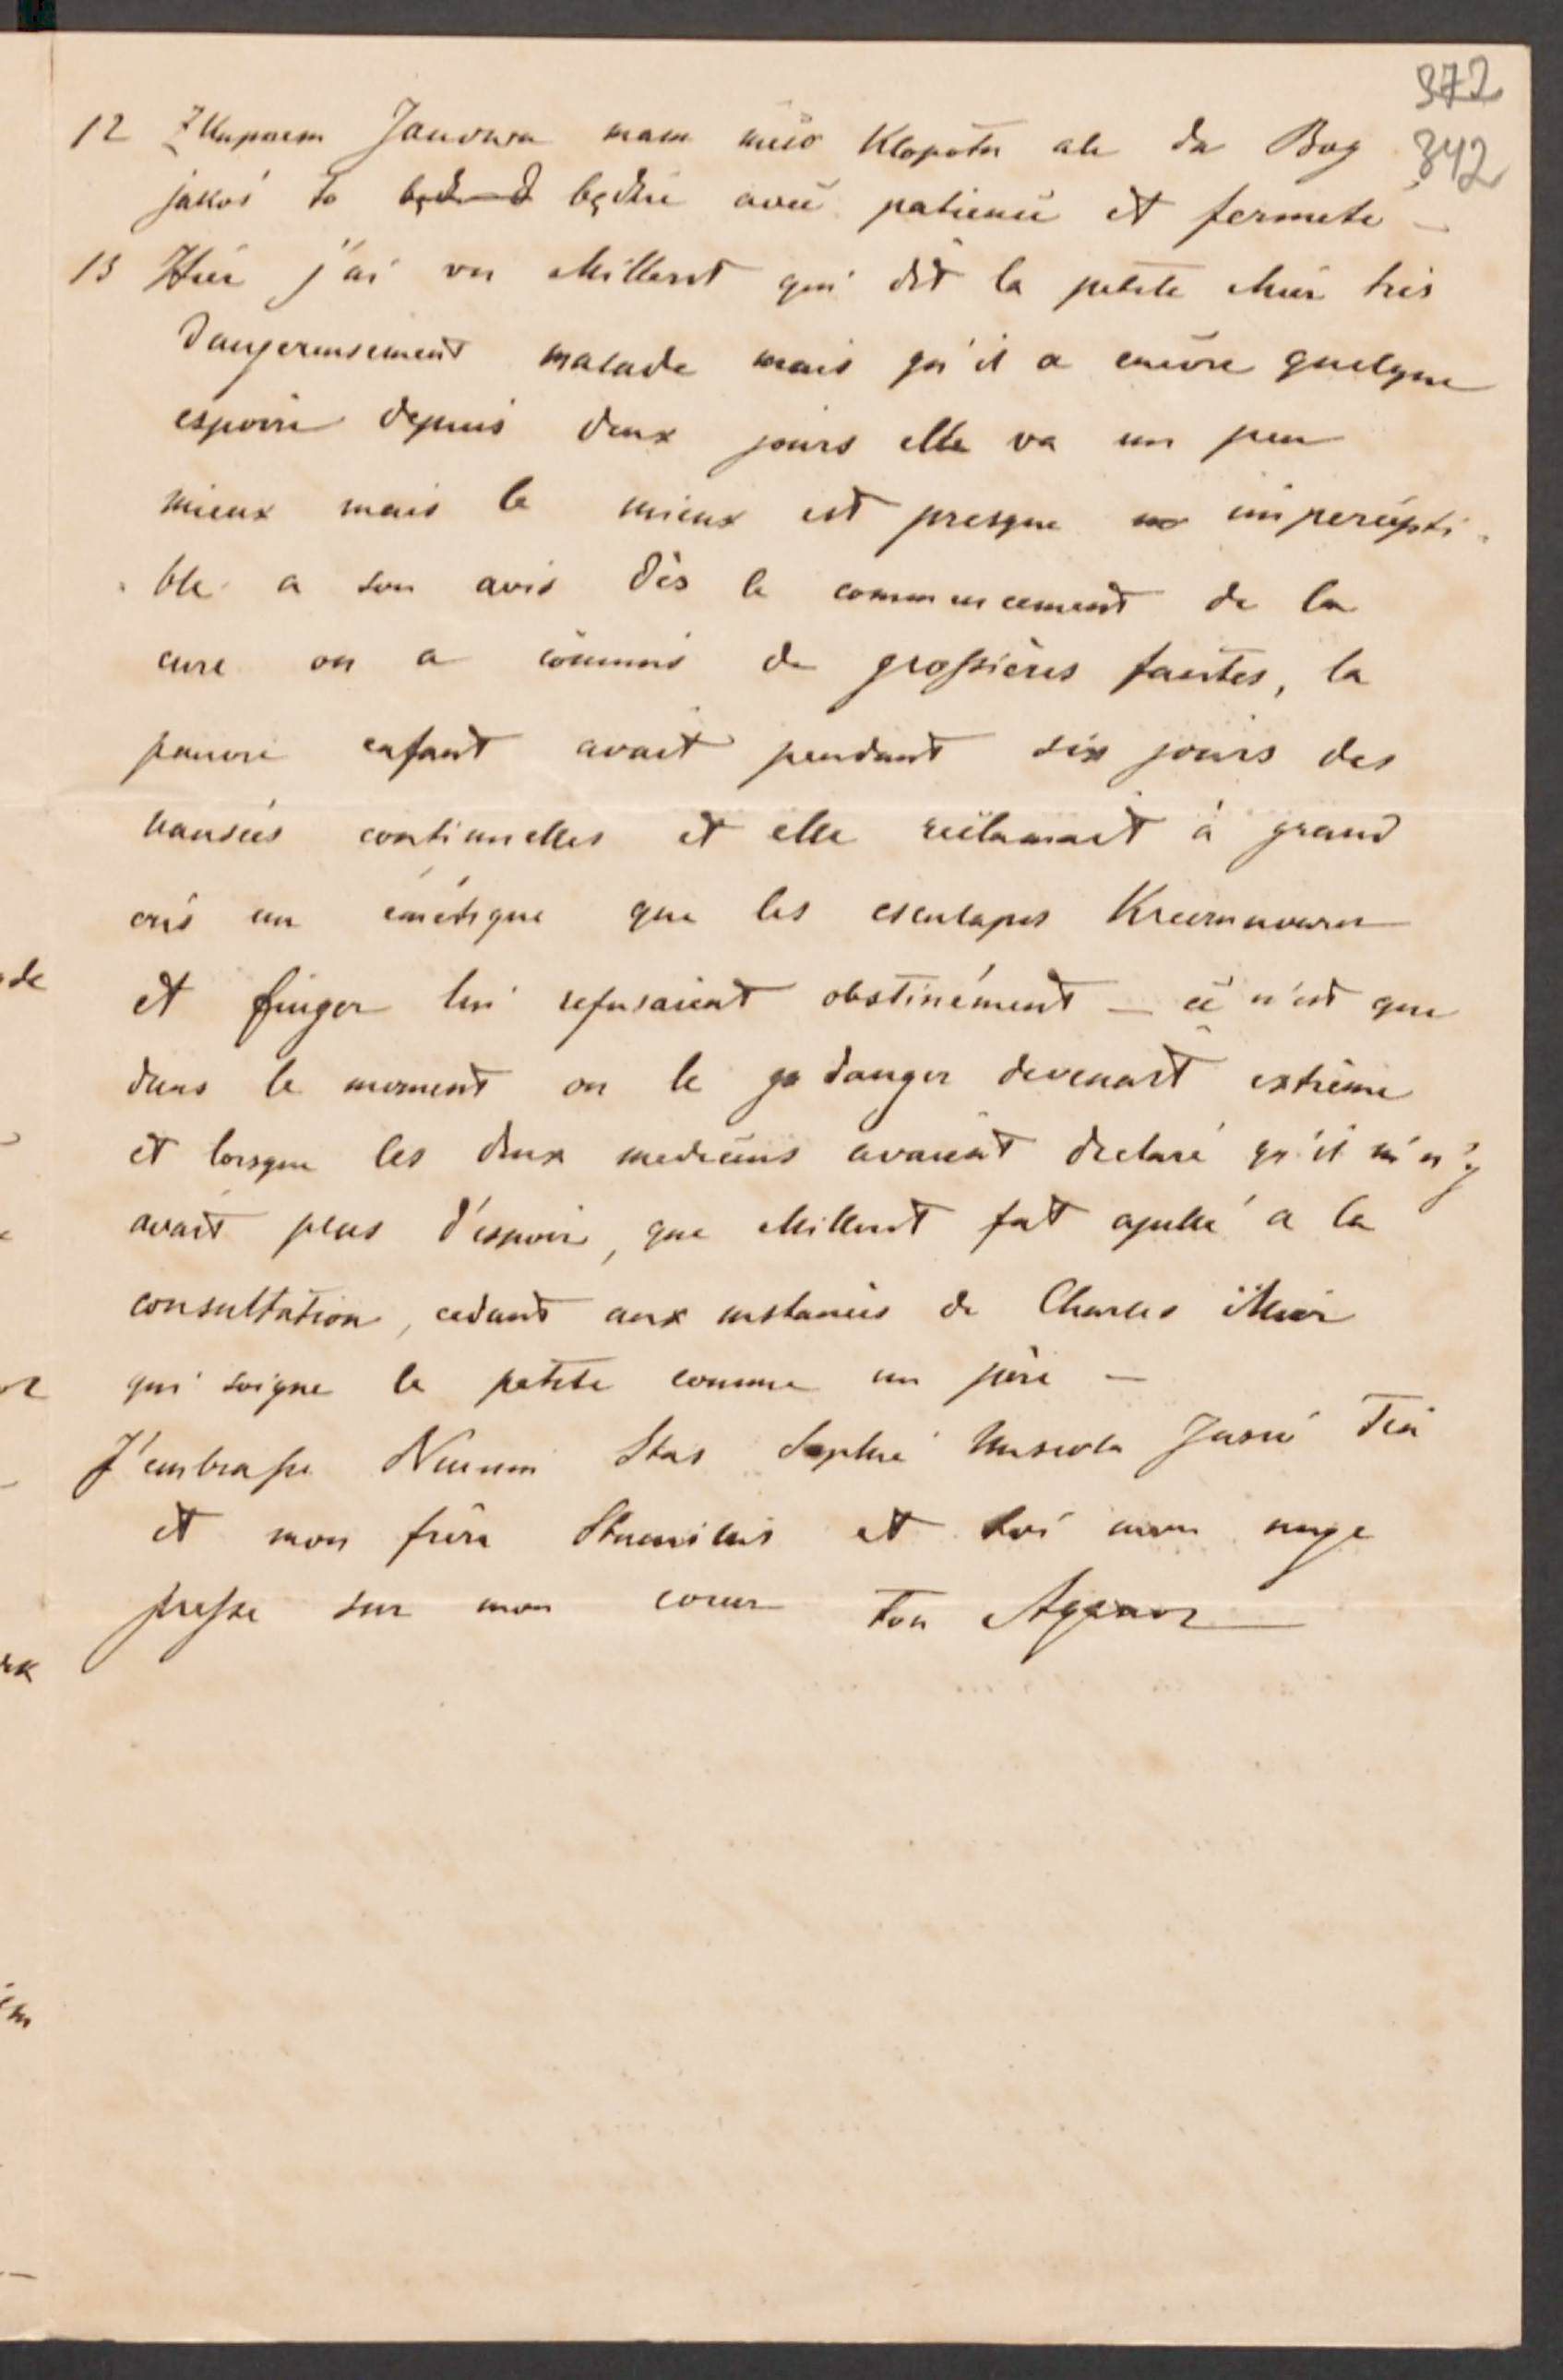 372
342
12 Z Kupnem Janowa mam nieco Klopotu ale da Bog
jakoś to będzie avec patience et fermeté —
13 Hier j'ai vu Milleret qui dit la petite Mier très
dangereusement malade mais qu'il a encore quelque
espoire depuis deux jours elle va un peu
mieux mais le mieux est presque impercepti-
-ble a son avis dès le commencement de la
cure on a commis de grossières fautes, la
pauvre enfant avait pendant six jours des
nausées continuelles et elle réclamait à grand
cris un émétique que les esculapes
et Finger lui refusaient obstinément — ce n'est que
dans le moment ou le danger devenait extrème
et lorsque les deux medecins avaient declaré qu'il n'y
avait plus d'espoir, que Milleret fut apellé a la
consultation, cedant aux instances de Charles Mier
qui soigne la petite comme un père —
J'embrasse Stas Sophie Jusié
et mon frère Stanislas et toi mon ange
presse sur mon coeur ton Agenor